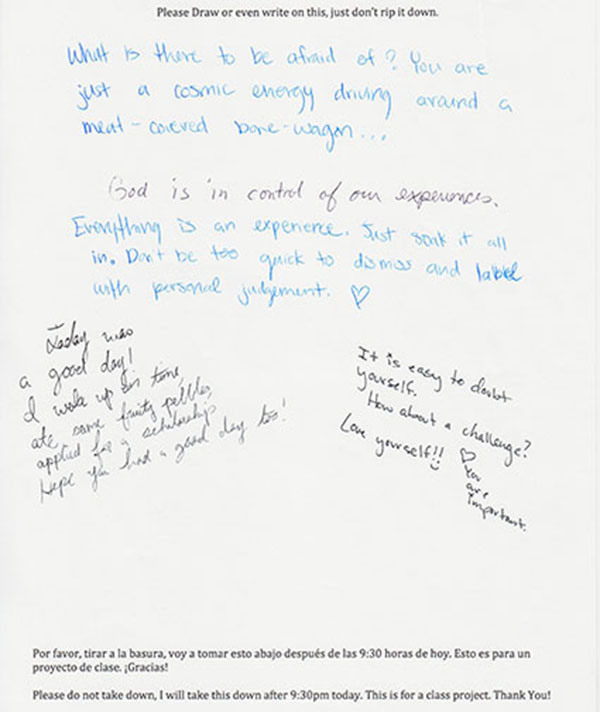 Please Draw or even write on this, just don't rip it down.
What is there to be afraid of? You are
just a cosmic energy driving around a
meat-covered bone-wagon...
God is in control of our experiences.
Everything is an experience. Just soak it all
in. Don't be too quick to dismiss and label
with personal judgement. ♡
Today was
a good day!
I woke up on time,
ate some fruity pebbles,
applied for a scholarship
Hope you had a good day too!
It is easy to doubt
yourself.
How about a challenge?
Love yourself!!
♡ You
are
important.
Por favor, tirar a la basura, voy a tomar esto abajo después de las 9:30 horas de hoy. Esto es para un
proyecto de clase. ¡Gracias!
Please do not take down, I will take this down after 9:30pm today. This is for a class project. Thank You!